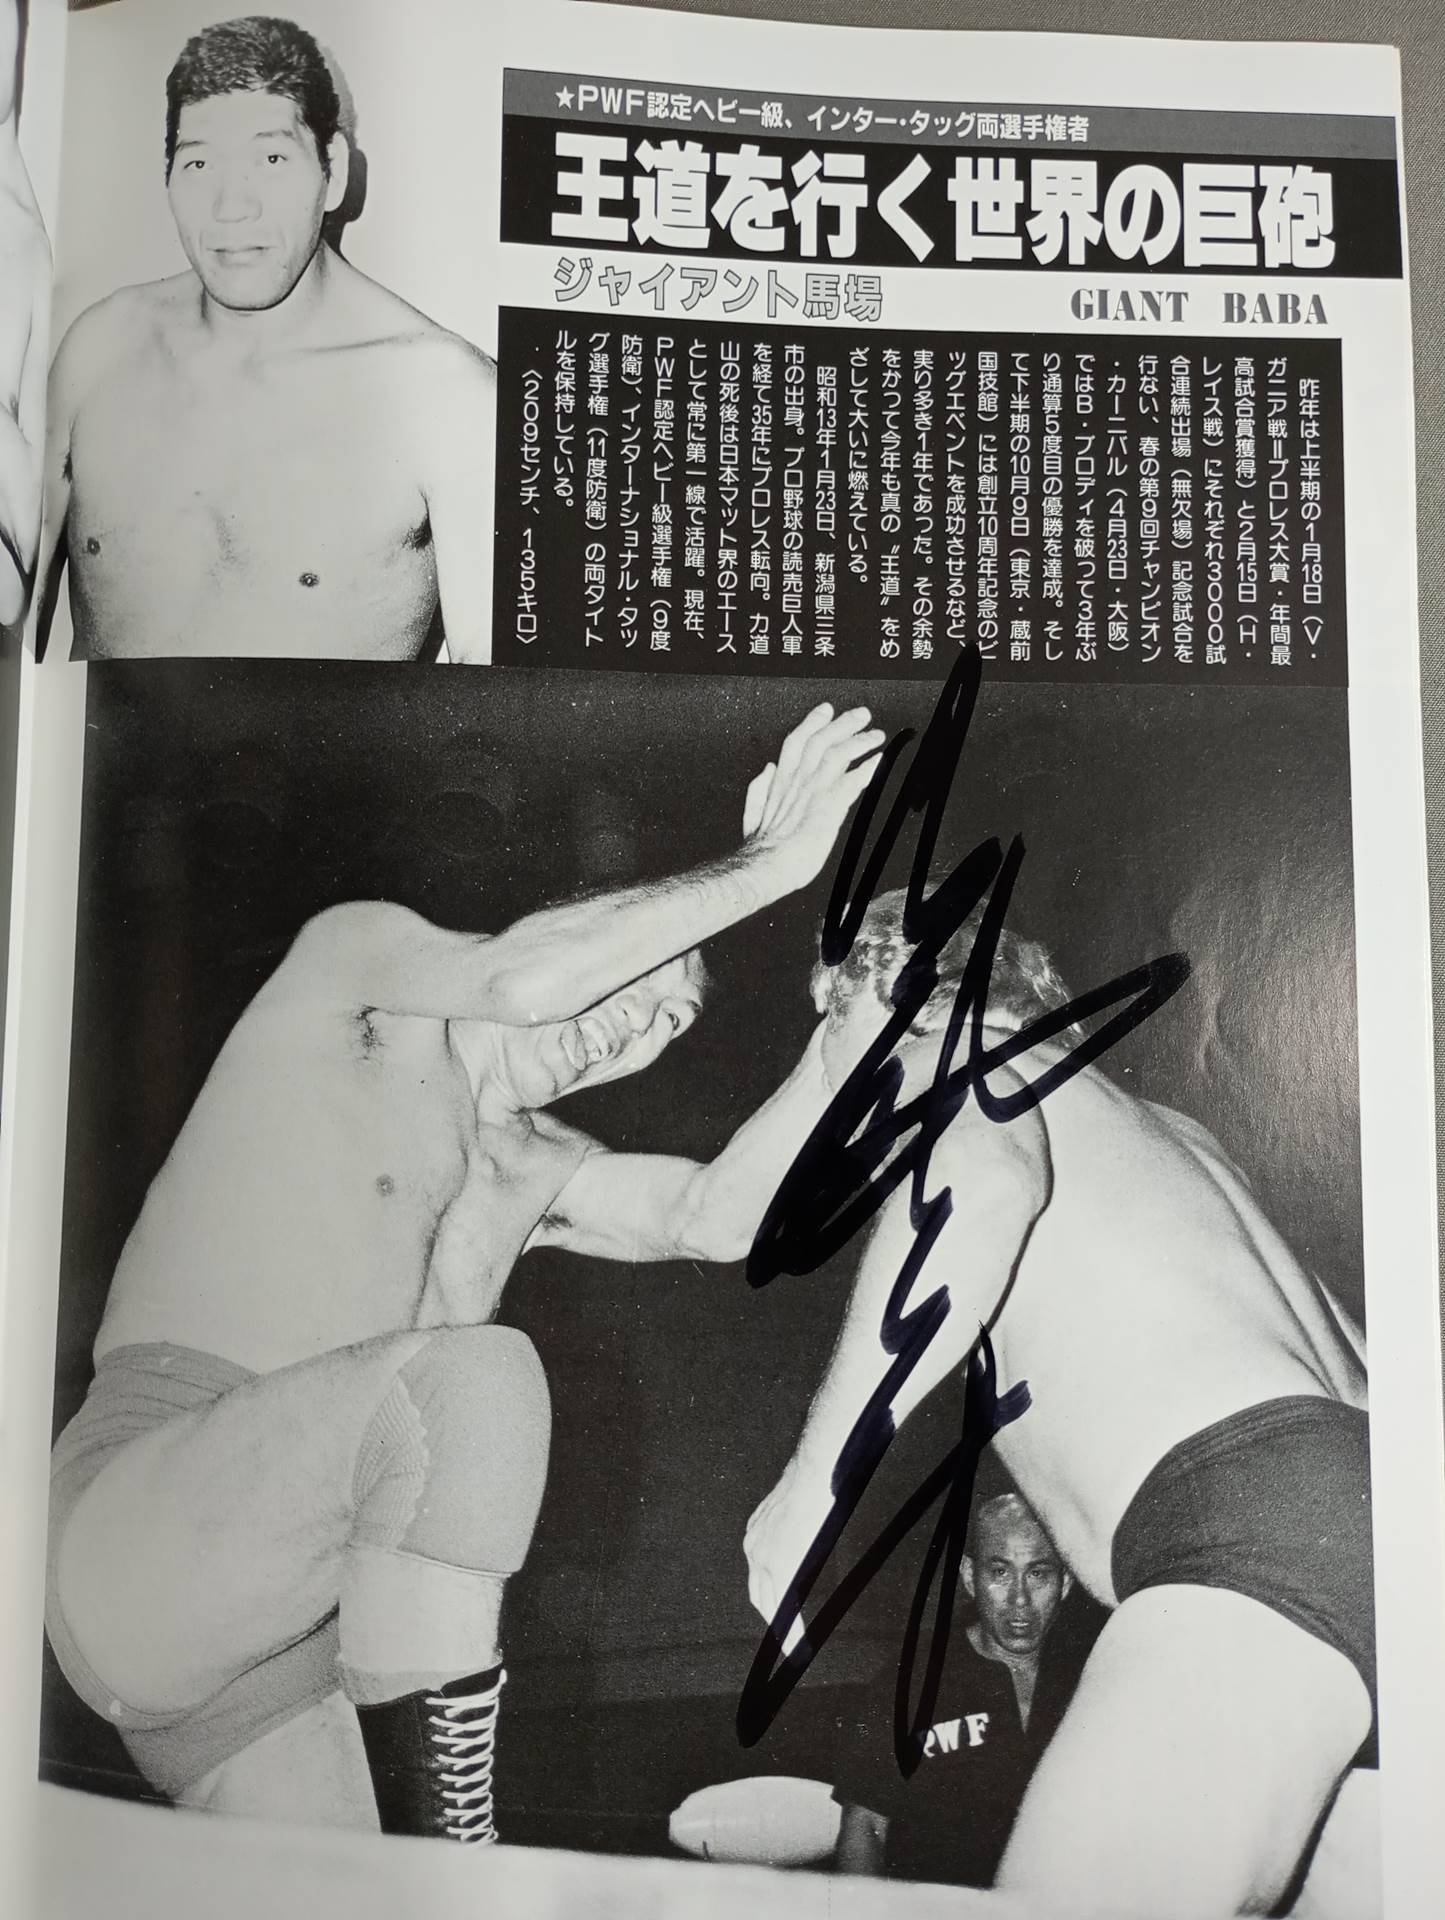 ★PWF認定ヘビー級、インター・タッグ両選手権者
王道を行く世界の巨砲
ジャイアント馬場
GIANT BABA
昨年は上半期の1月18日（V・
ガニア戦＝プロレス大賞・年間最
高試合賞獲得）と2月15日（H・
レイス戦）にそれぞれ3000試
合連続出場（無欠場）記念試合を
行ない、春の第9回チャンピオン
・カーニバル（4月23日・大阪）
ではB・ブロディを破って3年ぶ
り通算5度目の優勝を達成。そし
て下半期の10月9日（東京・蔵前
国技館）には創立10周年記念のビ
ッグエベントを成功させるなど、
実り多き1年であった。その余勢
をかって今年も真の〝王道〟をめ
ざして大いに燃えている。
昭和13年1月23日、新潟県三条
市の出身。プロ野球の読売巨人軍
を経て35年にプロレス転向。力道
山の死後は日本マット界のエース
として常に第一線で活躍。現在、
PWF認定ヘビー級選手権（9度
防衛）、インターナショナル・タッ
グ選手権（11度防衛）の両タイト
ルを保持している。
〈209センチ、135キロ〉
PWF